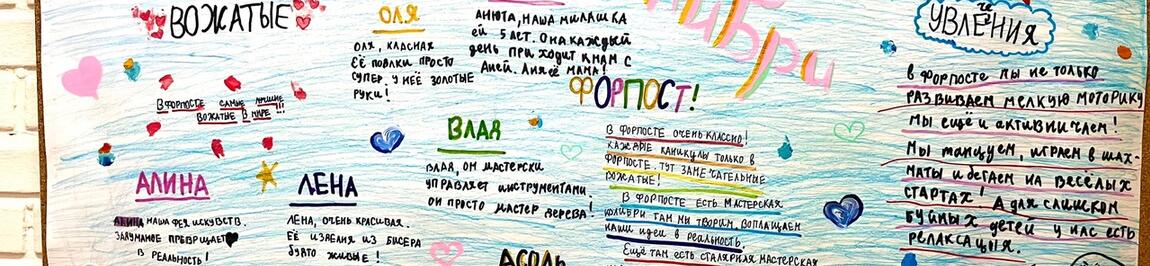 ВОЖАТЫЕ
В ФОРПОСТЕ САМЫЕ ЛУЧШИЕ
ВОЖАТЫЕ В МИРЕ!!!
АЛИНА
АЛИНА НАША ФЕЯ ИСКУВСТВ.
ЗАДУМАНОЕ ПРЕВРЩАЕТ
В РЕАЛЬНОСТЬ!
ЛЕНА
ЛЕНА, ОЧЕНЬ КРАСИВАЯ.
ЕЁ ИЗДЕЛИЯ ИЗ БИСЕРА
БУДТО ЖИВЫЕ!
ОЛЯ
ОЛЯ, КЛАСНАЯ
ЕЁ ПОДЛКИ ПРОСТО
СУПЕР. У НЕЁ ЗОЛОТЫЕ
РУКИ!
АНЮТА, НАША МИЛАШКА
ЕЙ 5 ЛЕТ. ОНА КАЖДЫЙ
ДЕНЬ ПРИХОДИТ К НАМ С
ЛИЯ ЕЁ МАМА!
ВЛАД
ВЛАД, ОН МАСТЕРСКИ
УПРАВЛЯЕТ ИНСТРУМЕНТАМИ
ОН ПРОСТО МАСТЕР ДЕРЕВА!
АСОЛЬ
ФОРПОСТ!
В ФОРПОСТЕ ОЧЕНЬ КЛАССНО!
КАЖДЫЕ КАНИКУЛЫ ТОЛЬКО В
ФОРПОСТЕ. ТУТ ЗАМЕЧАТЕЛЬНЫЕ
ВОЖАТЫЕ!
В ФОРПОСТЕ ЕСТЬ МАСТЕРСКАЯ
КОЛИБРИ ТАМ МЫ ТВОРИМ, ВОПЛОЩАЕМ
НАШИ ИДЕИ В РЕАЛЬНОСТЬ.
ЕЩЁ ТАМ ЕСТЬ СТАЛЯРНАЯ МАСТЕРСКАЯ
УВЛЕНИЯ
В ФОРПОСТЕ МЫ НЕ ТОЛЬКО
РАЗВИВАЕМ МЕЛКУЮ МОТОРИКУ
МЫ ЕЩЁ И АКТИВНИЧАЕМ!
МЫ ТАНЦУЕМ, ИГРАЕМ В ШАХ-
МАТЫ И БЕГАЕМ НА ВЕСЁЛЫХ
СТАРТАХ! А ДЛЯ СЛИШКОМ
БУЙНЫХ ДЕТЕЙ У НАС ЕСТЬ
РЕЛАКСАЦЫЯ.